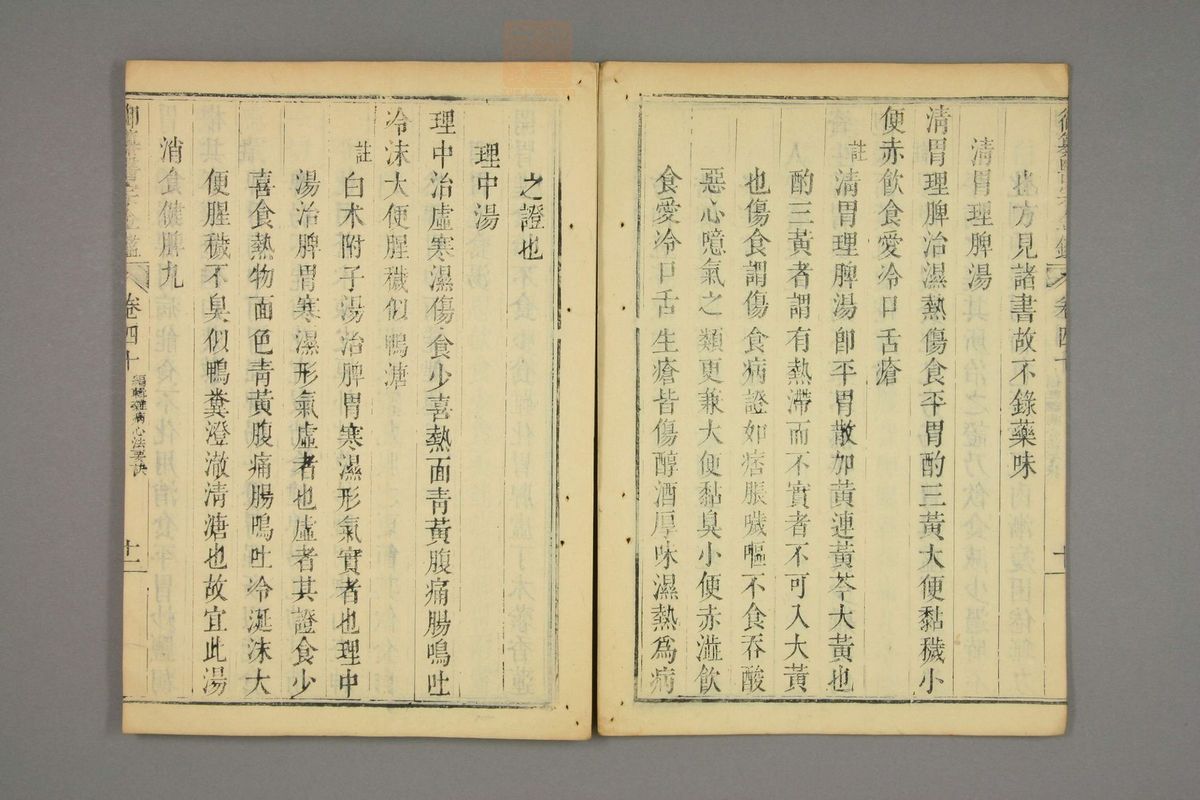 也方見諸書故不錄藥味
清胃理脾湯
清胃理脾治濕熱傷食平胃酌三黃大便黏穢小
便赤飲食愛冷口舌瘡
註
清胃理脾湯卽平胃散加黃連黃芩大黃也
酌三黃者謂有熱滯而不實者不可入大黃
也傷食謂傷食病證如痞脹噦嘔不食吞酸
惡心噫氣之類更兼大便黏臭小便赤澁飲
食愛冷口舌生瘡皆傷醇酒厚味濕熱爲病
之證也
理中湯
理中治虛寒濕傷食少喜熱面青黃腹痛腸鳴吐
冷沫大便腥穢似鴨溏
註
白术附子湯治脾胃寒濕形氣實者也理中
湯治脾胃寒濕形氣虛者也虛者其證食少
喜食熱物面色靑黃腹痛腸鳴吐冷涎沫大
便腥穢不臭似鴨糞澄澈清溏也故宜此湯
消食健脾丸
卷四十
編輯雜病心法要訣
十一